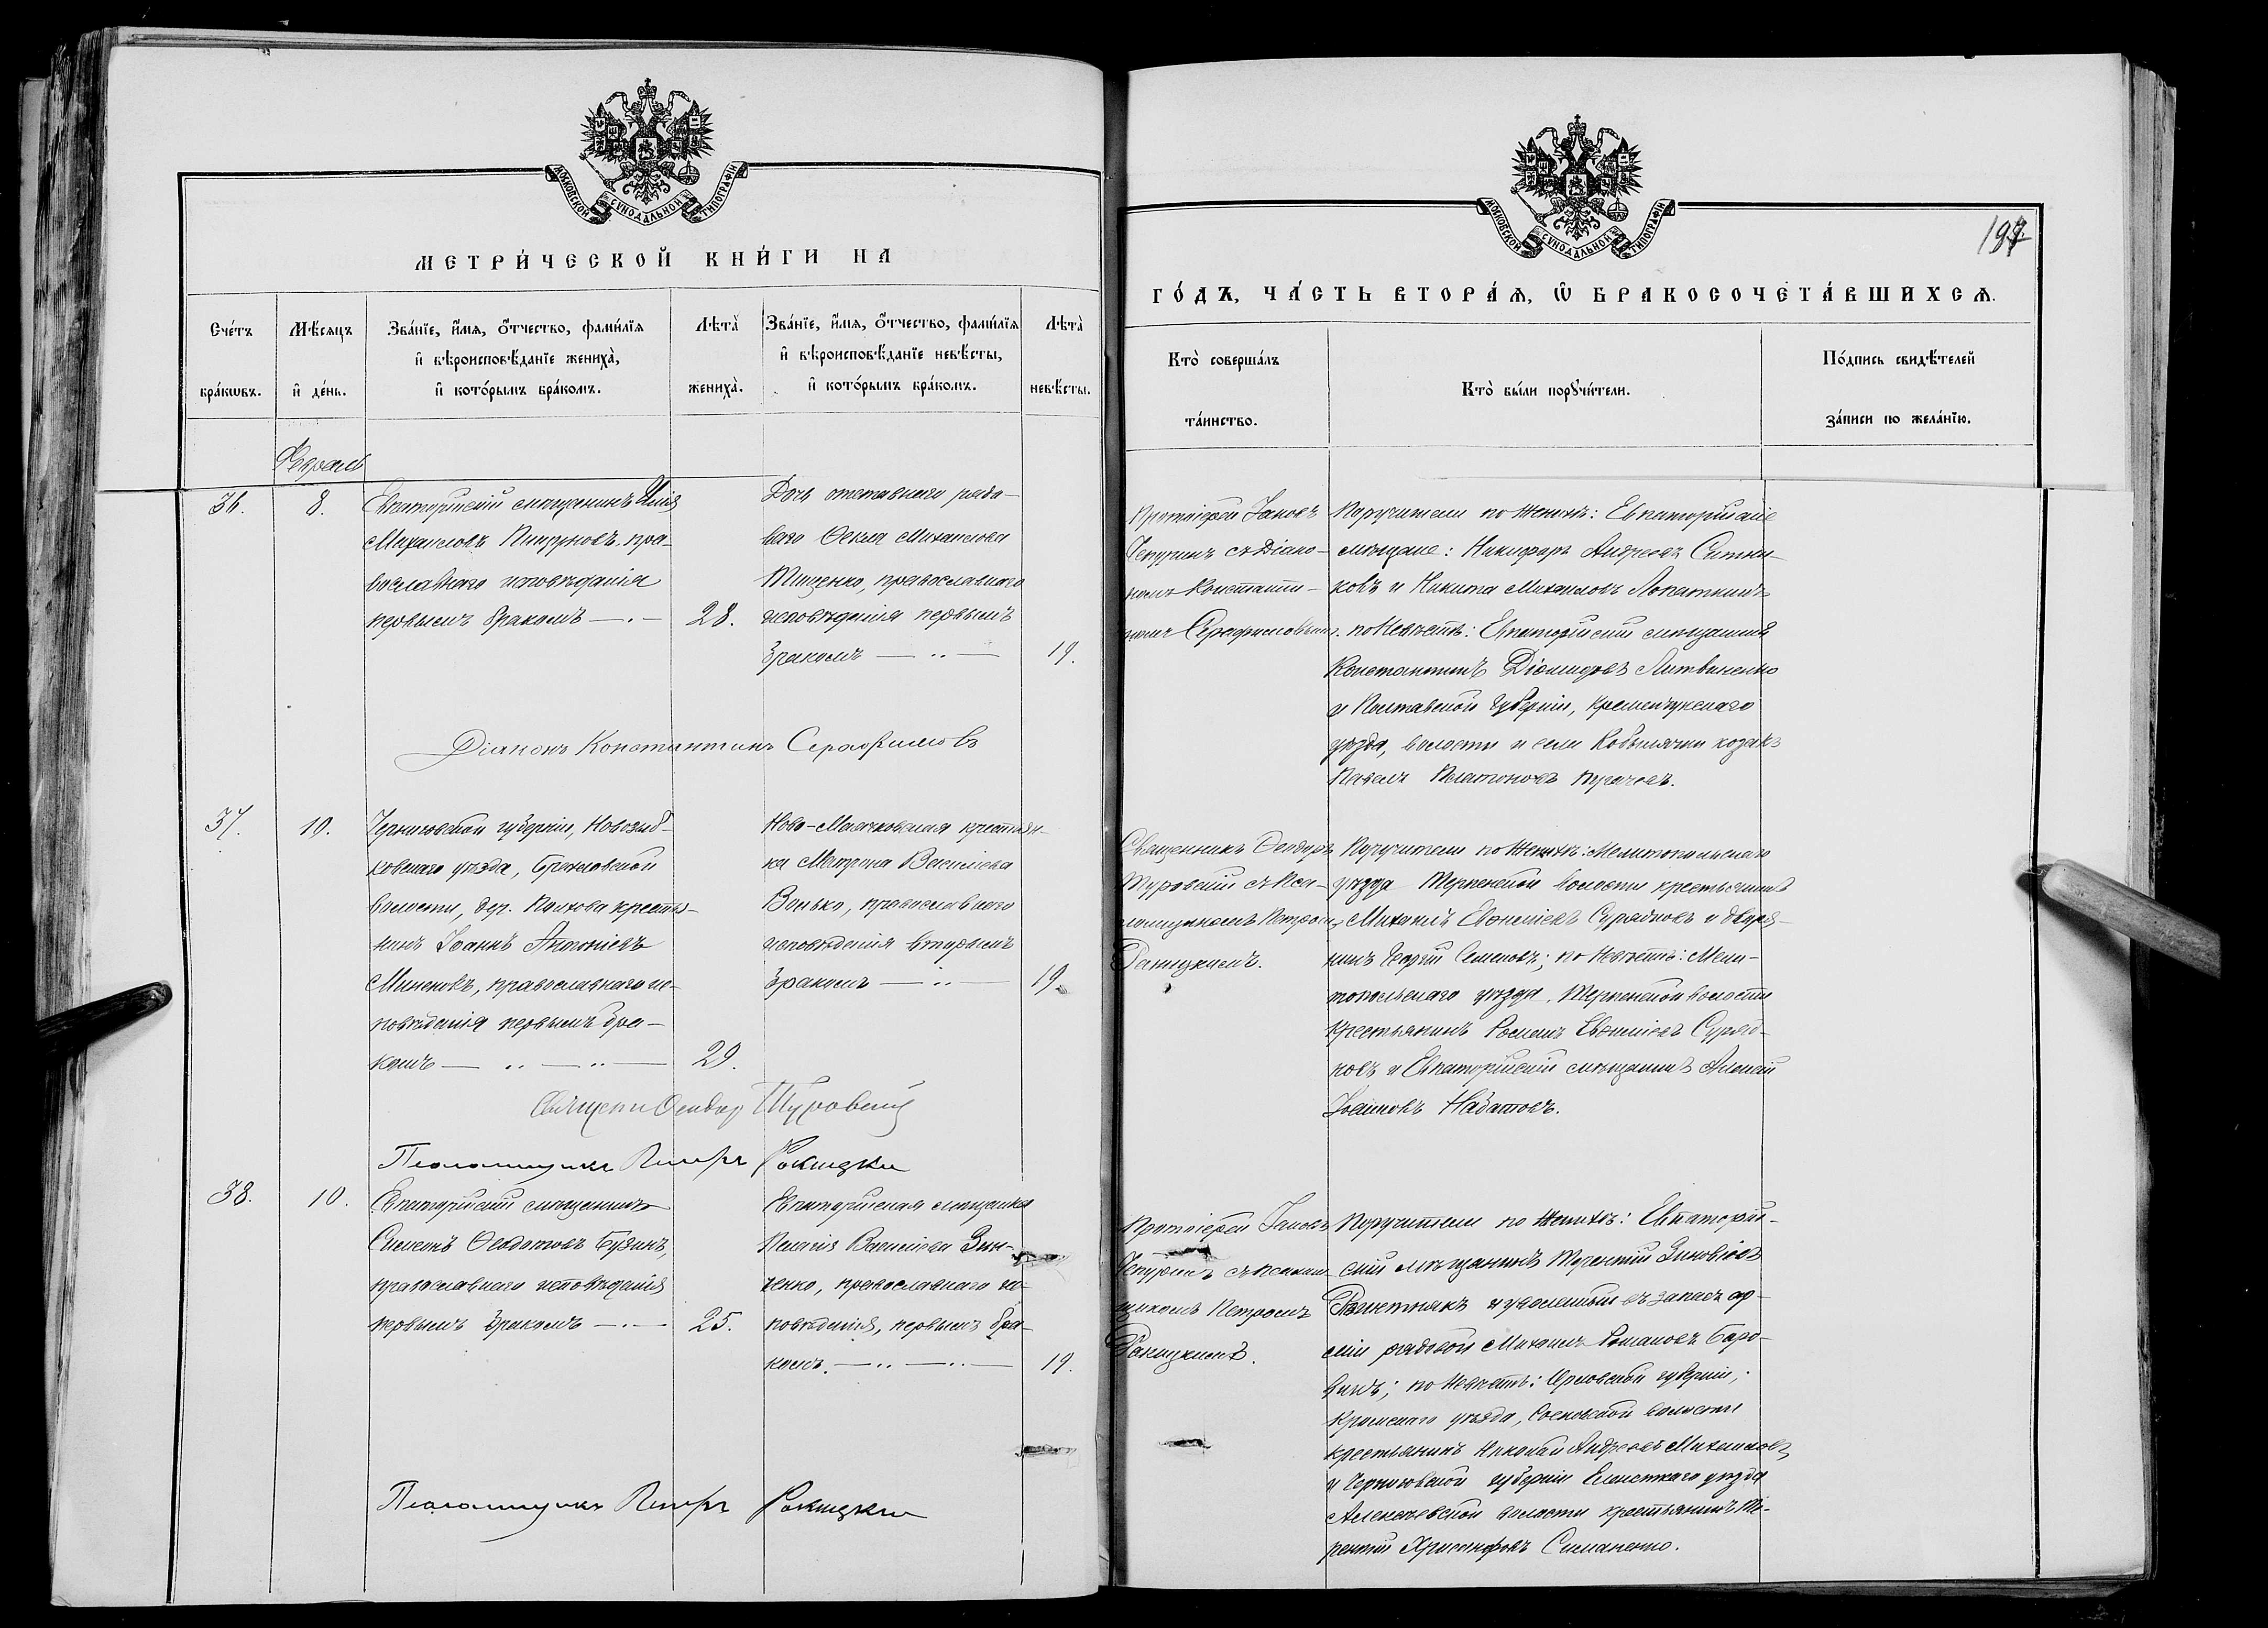 МОСКОВСКОЙ СУНОДАЛЬНОЙ ТИПОГРАФІИ
МЕТРИ́ЧЕСКОЙ КНИ́ГИ НА
Сче́тъ бра́кѡвъ.
Мѣ́сяцъ и҆ де́нь.
Зва́нїе, и҆́мѧ, ѻ҆́тчество, фами́лїѧ
и҆ вѣроисповѣ́данїе жениха̀,
и҆ кото́рымъ бра́комъ.
Лѣта̀ жениха̀.
Зва́нїе, и҆́мѧ, ѻ҆́тчество, фами́лїѧ
и҆ вѣроисповѣ́данїе невѣ́сты,
и҆ кото́рымъ бра́комъ.
Лѣта̀ невѣ́сты.
Февраль
36.
8.
Евпаторійскій мѣщанинъ Илія
Михаиловъ Пигуновъ, пра-
вославнаго исповѣданія
первымъ бракомъ
28.
Дочь отставнаго рядо-
ваго Ѳекла Михаилова
Тищенко, православнаго
исповѣданія первымъ
бракомъ
19.
Діаконъ Константинъ Серафимовъ
37.
10.
Черниговской губерніи, Новозыб-
ковскаго уѣзда, Брахловской
волости, дер. Полхова крестья-
нинъ Іоаннъ Антоніевъ
Миненокъ, православнаго ис-
повѣданія первымъ бра-
комъ
29.
Ново-Маячковская крестьян-
ка Матрона Василіева
Волько, православнаго
исповѣданія вторымъ
бракомъ
19.
Священн Ѳеодор Туровскій
Псаломщикъ Петръ Ракицкій
38.
10.
Евпаторійскій мѣщанинъ
Симеонъ Ѳеодотовъ Бузинъ,
православнаго исповѣданія
первымъ бракомъ
25.
Евпаторійская мѣщанка
Пелагія Василіева Зин-
ченко, православнаго ис-
повѣданія, первымъ бра-
комъ.
19.
Псаломщикъ Петръ Ракицкій
МОСКОВСКОЙ СУНОДАЛЬНОЙ ТИПОГРАФІИ
197
ГО́ДЪ, ЧА́СТЬ ВТОРА́Ѧ, Ѽ БРАКОСОЧЕТА́ВШИХСѦ.
Кто̀ соверша́лъ
та́инство.
Кто̀ бы́ли порꙋчи́тели.
По́дпись свидѣ́телей
за́писи по жела́нїю.
Протоіерей Іаковъ
Чепуринъ съ Діако-
номъ Константи-
номъ Серафимовымъ.
Поручители по Женихѣ: Евпаторійскіе
мѣщане: Никифоръ Андреевъ Ситни-
ковъ и Никита Михаиловъ Лопаткинъ
по Невѣстѣ: Евпаторійскій мѣщанинъ
Константинъ Діомидовъ Литвиненко
и Полтавской губерніи, Кременчугскаго
уѣзда, волости и села Кобылячки козакъ
Павелъ Платоновъ
Священникъ Ѳеодоръ
Туровскій съ Пса-
ломщикомъ Петромъ
Ракицкимъ.
Поручители по Женихѣ: Мелитопольскаго
уѣзда Терпенской волости крестьянинъ
Михаилъ Евѳиміевъ Сурядковъ и дворя-
нинъ Георгій Семеновъ; по Невѣстѣ: Мели-
топольскаго уѣзда, Терпенской волости
крестьянинъ Романъ Евѳиміевъ Суряд-
ковъ и Евпаторійскій мѣщанинъ Алексій
Іоанновъ Набатовъ.
Протоіерей Іаковъ
Чепуринъ съ Псалом-
щикомъ Петромъ
Ракицкимъ.
Поручители по Женихѣ: Евпаторій-
скій мѣщанинъ Терентій Зиновіевъ
и уволенный въ запасъ ар-
міи рядовой Михаилъ Романовъ Боро-
винъ; по Невѣстѣ: Орловской губерніи,
Кромскаго уѣзда, Сосковской волости
крестьянинъ Николай Андреевъ Михаиловъ,
и Черниговской губерніи уѣзда
Алексѣевской волости крестьянинъ Те-
рентій Хрисанфовъ Симаненко.